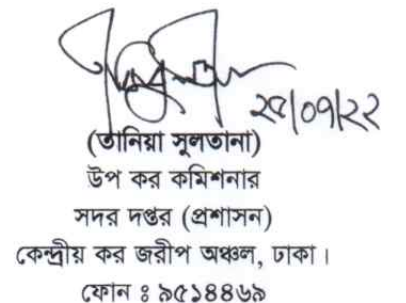 ২৫/০৭/২২
(তানিয়া সুলতানা)
উপ কর কমিশনার
সদর দপ্তর (প্রশাসন)
কেন্দ্রীয় কর জরীপ অঞ্চল, ঢাকা।
ফোন ঃ ৯৫১৪৪৬৯